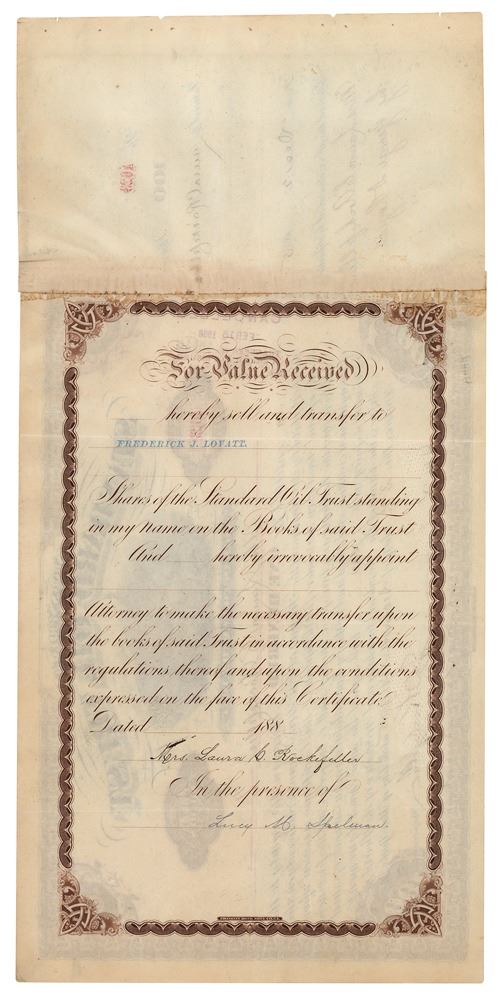 For Value Received
hereby sell and transfer to
FREDERICK J. LOVATT.
Shares of the Standard Oil Trust standing
in my name on the Books of said Trust
And hereby irrevocably appoint
Attorney to make the necessary transfer upon
the books of said Trust in accordance with the
regulations thereof and upon the conditions
expressed on the face of this Certificate.
Dated 188
Mrs. Laura C. Rockefeller
In the presence of
Lucy M. Spelman.